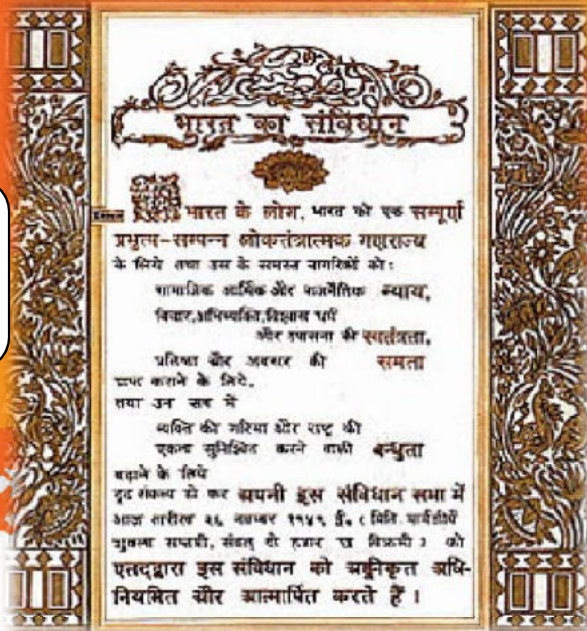 भारत का संविधान
भारत के लोग, भारत को एक सम्पूर्ण
प्रभुत्व-सम्पन्न लोकतंत्रात्मक गणराज्य
के लिये तथा उस के समस्त नागरिकों को:
सामाजिक आर्थिक और राजनैतिक न्याय,
विचार,अभिव्यक्ति,विश्वास धर्म
और उपासना की स्वतंत्रता,
प्रतिष्ठा और अवसर की समता
प्राप्त कराने के लिये,
तथा उन सब में
व्यक्ति की गरिमा और राष्ट्र की
एकता सुनिश्चित करने वाली बन्धुता
बढ़ाने के लिये
दृढ़ संकल्प हो कर अपनी इस संविधान सभा में
आज तारीख २६ नवम्बर १९४९ ई. ( मिति मार्गशीर्ष
शुक्ला सप्तमी, संवत् दो हजार छ विक्रमी ) को
एतद्द्वारा इस संविधान को अंगीकृत अधि-
नियमित और आत्मार्पित करते हैं ।